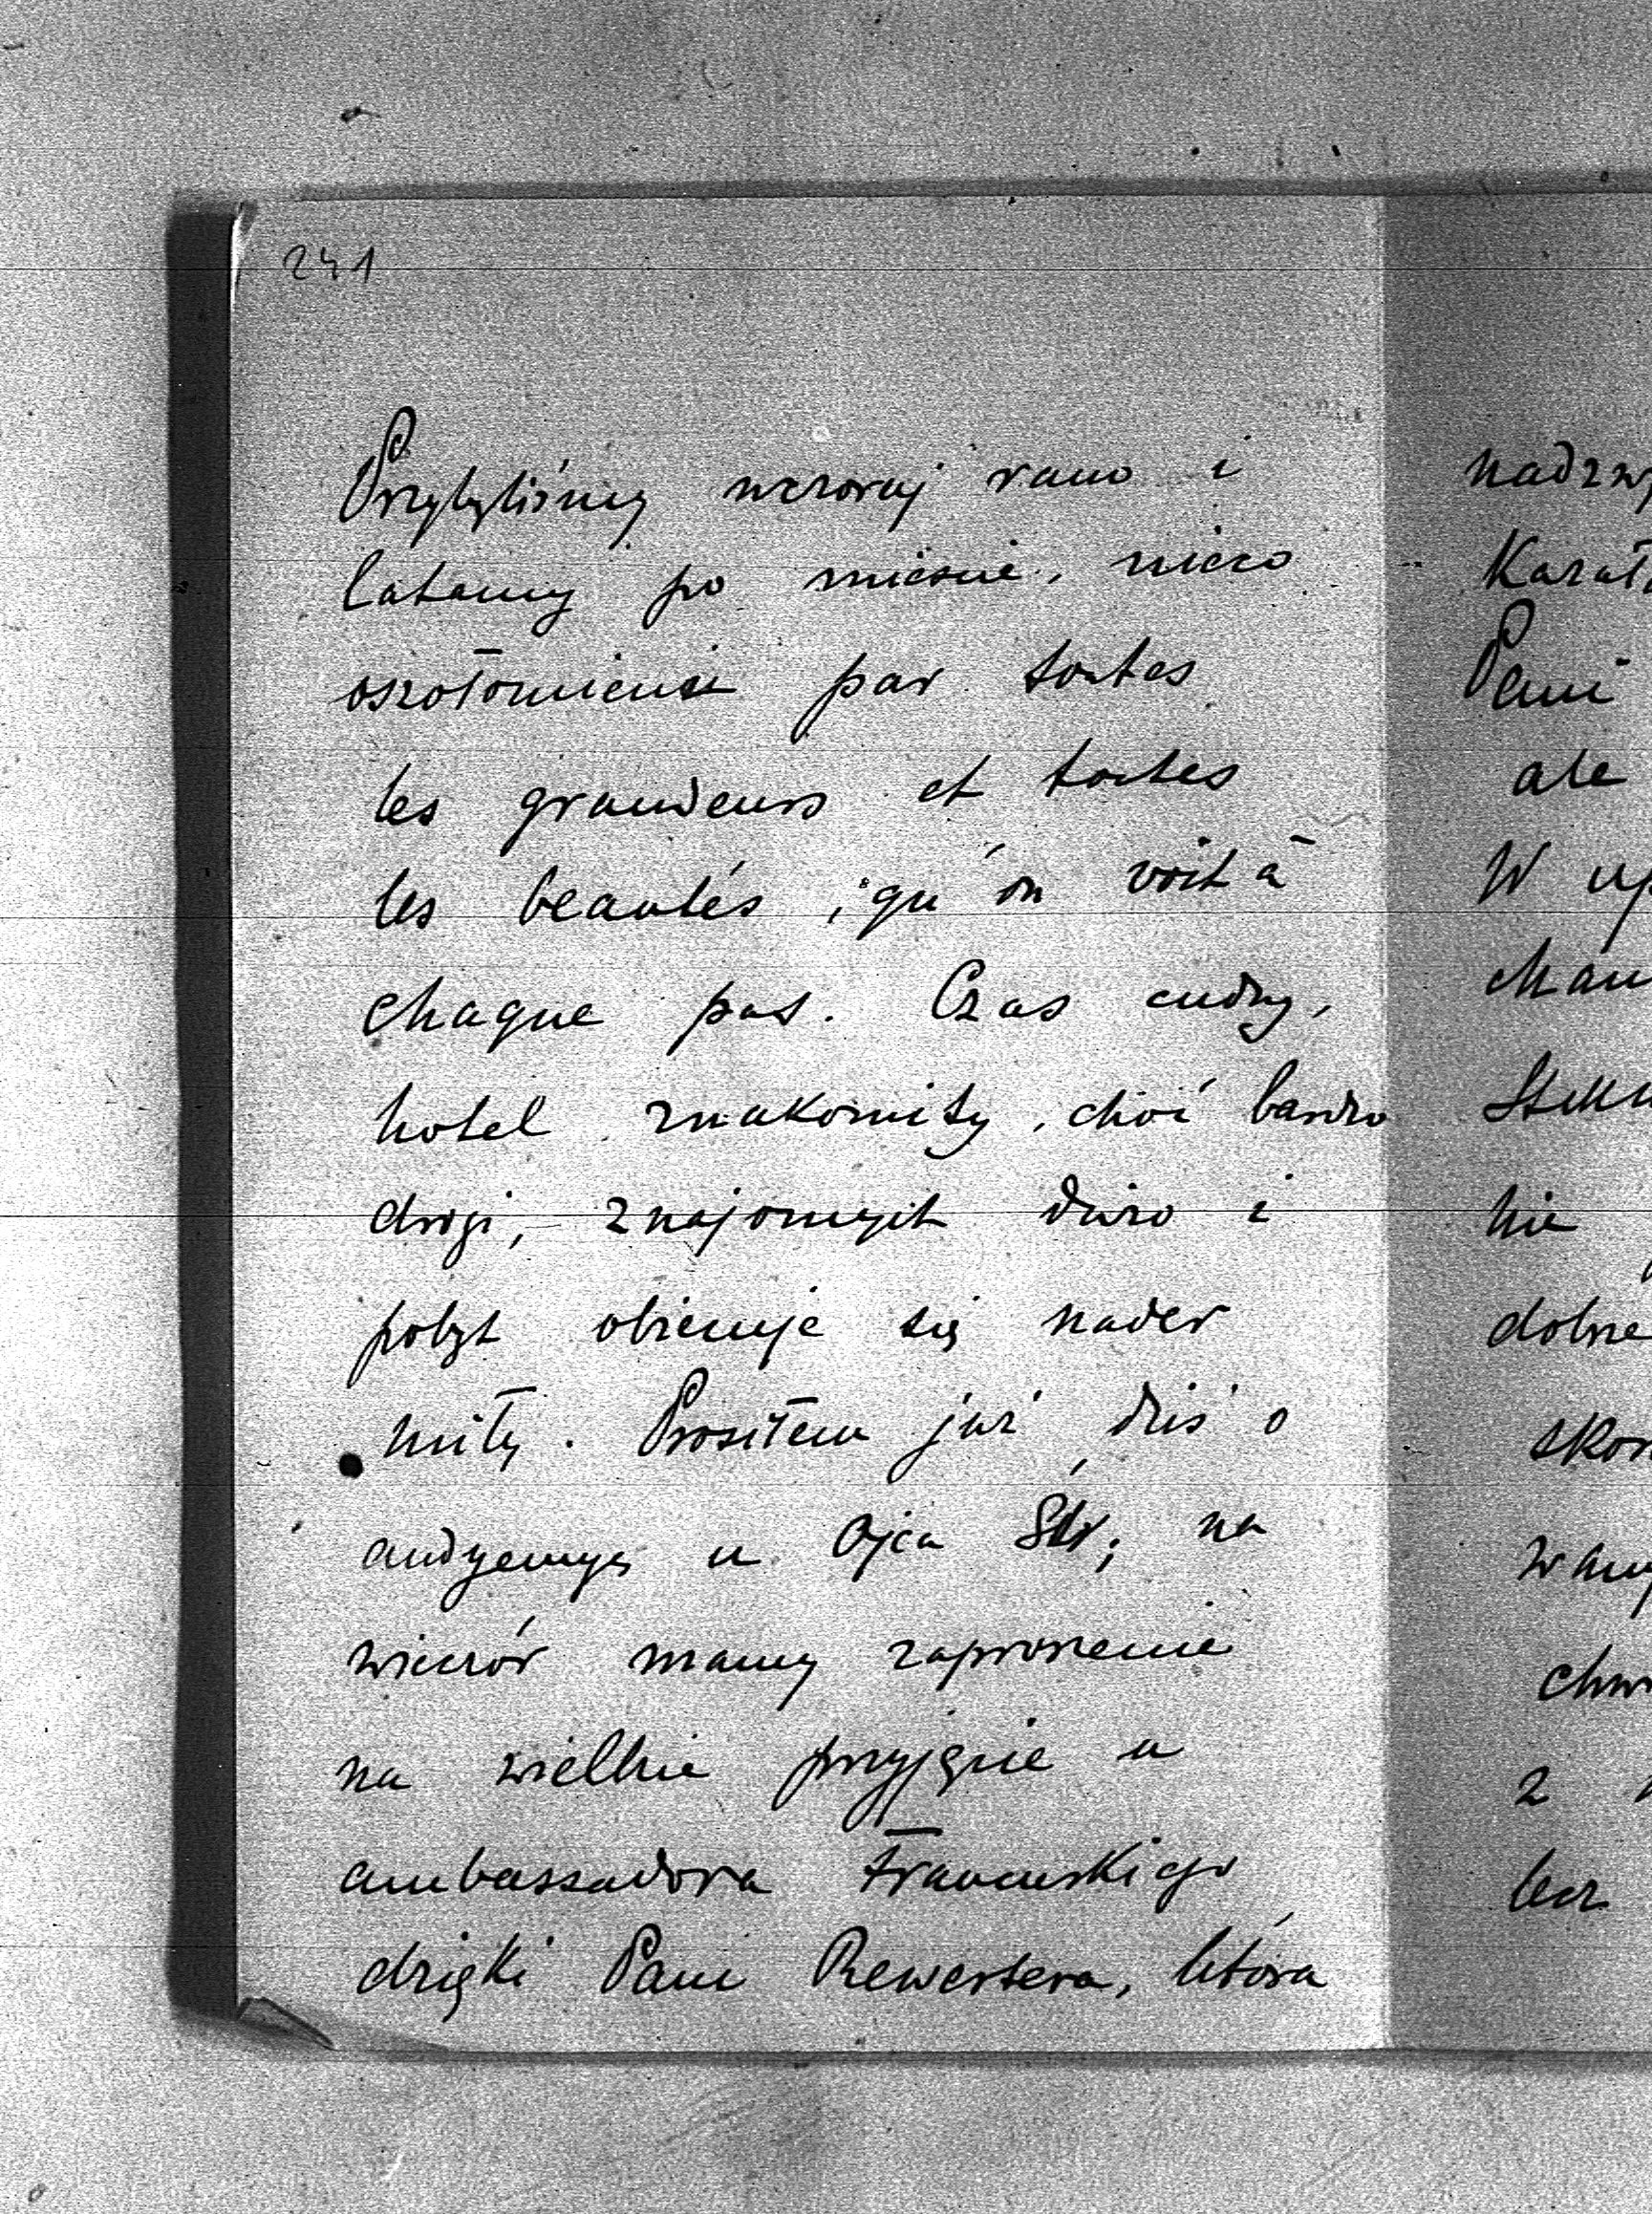 241
Przybyliśmy wczoraj rano i
latamy po mieście, nieco
oszołomieni par toutes
les grandeurs et toutes
les beautés, qu'on voit à
chaque pas. Czas cudny,
hotel znakomity, choć bardzo
drogi, znajomych dużo i
pobyt obiecuje się nader
miły. Prosiłem już dziś o
audyencyę u Ojca Św; na
wieczór mamy zaproszenie
na wielkie przyjęcie u
ambassadora Francuskiego
dzięki Pani Rewertera, która
nadzwy
Pani
ale
W
nie
dobre
z
lecz